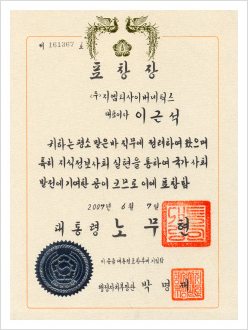 제 161367 호
표창장
(주)지씨티사이버네틱스
대표이사 이근석
귀하는 평소 맡은바 직무에 정려하여 왔으며
특히 지식정보사회 실현을 통하여 국가 사회
발전에 기여한 공이 크므로 이에 표창함
2007년 6월 7일
대통령 노무현
이 증을 대통령표창부에 기입함
행정자치부장관 박명재